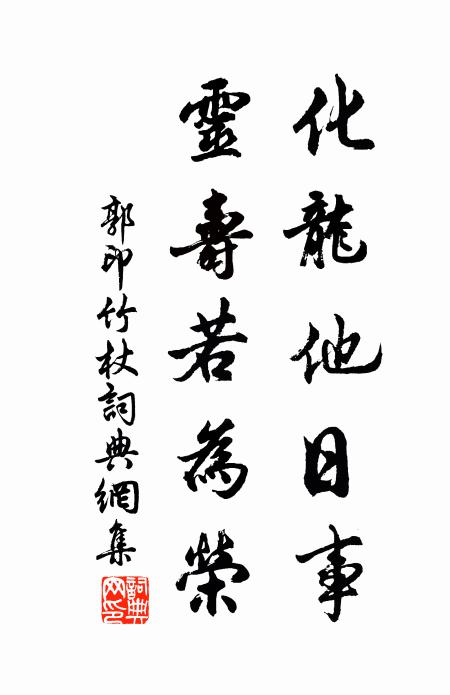 化龍他日事
靈壽若為榮
郭印竹杖詞典網集
詞典網印